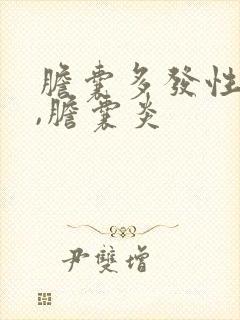 膽囊多發性
,膽囊炎
尹雙增